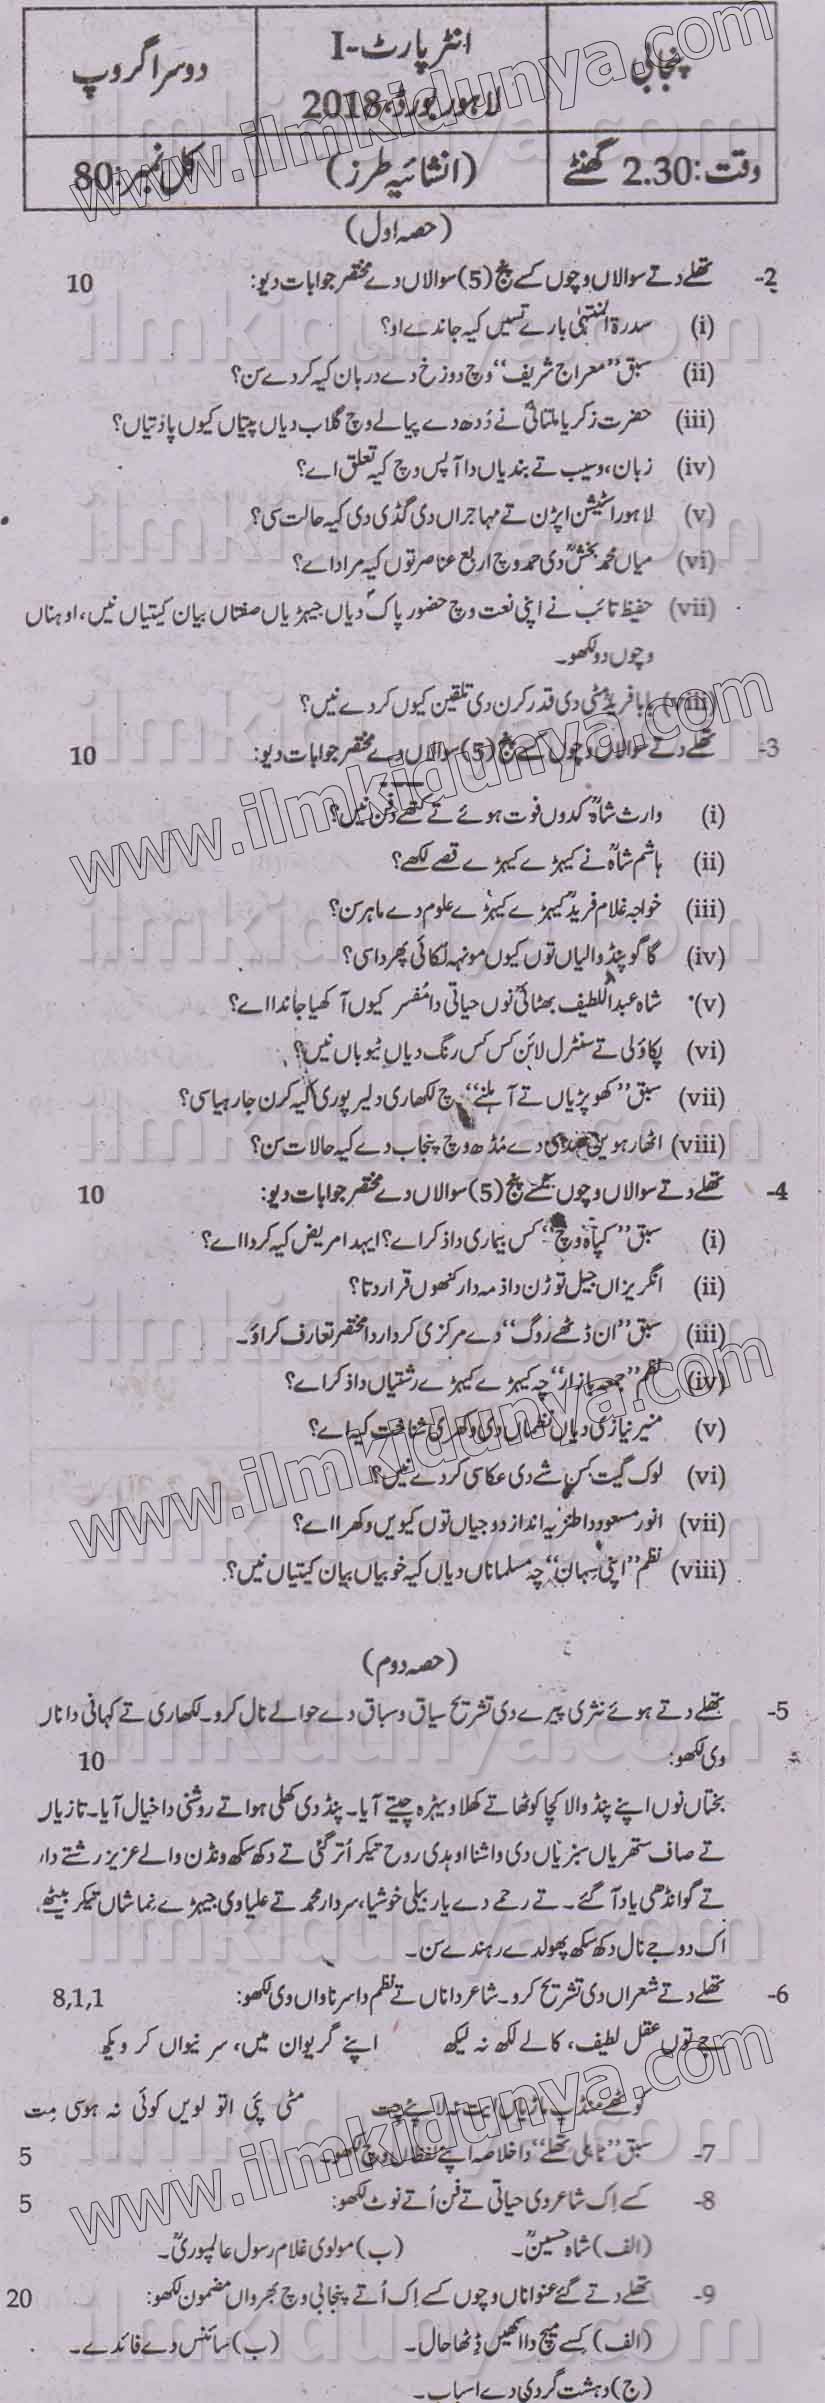 پنجابی
انٹر پارٹ-I
دوسرا گروپ
لاہور بورڈ، 2018
وقت: 2.30 گھنٹے
(انشائیہ طرز)
کل نمبر: 80
(حصہ اول)
2- تھلے دتے سوالاں وچوں کسے پنج (5) سوالاں دے مختصر جوابات دیو: 10
(i) سدرۃ المنتہیٰ بارے تسیں کیہ جاندے او؟
(ii) سبق ”معراج شریف“ وچ دوزخ دے دربان کیہ کردے سن؟
(iii) حضرت زکریا ملتانیؒ نے دُدھ دے پیالے وچ گلاب دیاں پتیاں کیوں پاؤتیاں؟
(iv) زبان، وسیب تے بندیاں دا آپس وچ کیہ تعلق اے؟
(v) لاہور اسٹیشن اپڑن تے مہاجراں دی گڈی دی کیہ حالت سی؟
(vi) میاں محمد بخشؒ دی حمد وچ اربع عناصر توں کیہ مراد اے؟
(vii) حفیظ تائب نے اپنی نعت وچ حضور پاکؐ دیاں جیہڑیاں صفتاں بیان کیتیاں نیں، اوہناں
وچوں دو لکھو۔
(viii) بابا فریدؒ مٹی دی قدر کرن دی تلقین کیوں کردے نیں؟
3- تھلے دتے سوالاں وچوں کسے پنج (5) سوالاں دے مختصر جوابات دیو: 10
(i) وارث شاہؒ کدوں فوت ہوئے تے کتھے دفن نیں؟
(ii) ہاشم شاہؒ نے کیہڑے کیہڑے قصے لکھے؟
(iii) خواجہ غلام فریدؒ کیہڑے کیہڑے علوم دے ماہر سن؟
(iv) گاگو پنڈ والیاں توں کیوں مونہہ لکائی پھردا سی؟
(v) شاہ عبداللطیف بھٹائیؒ نوں حیاتی دا مُفسر کیوں آکھیا جاندا اے؟
(vi) پکاڈلی تے سنٹرل لائن کس کس رنگ دیاں ٹیوباں نیں؟
(vii) سبق ”کھوپڑیاں تے آہلنے“ چ لکھاری دلیر پوری کیہ کرن جا رہیا سی؟
(viii) اٹھارہویں صدی دے مُڈھ وچ پنجاب دے کیہ حالات سن؟
4- تھلے دتے سوالاں وچوں کسے پنج (5) سوالاں دے مختصر جوابات دیو: 10
(i) سبق ”کپاہ وچ“ کس بیماری دا ذکر اے؟ ایہدا مریض کیہ کردا اے؟
(ii) انگریزاں جیل توڑن دا ذمہ دار کنھوں قرار دتا؟
(iii) سبق ”ان ڈٹھے روگ“ دے مرکزی کردار دا مختصر تعارف کراؤ۔
(iv) نظم ”جمعہ بازار“ چہ کیہڑے کیہڑے رشتیاں دا ذکر اے؟
(v) منیر نیازی دیاں نظماں دی وکھری شناخت کیہ اے؟
(vi) لوک گیت کس شے دی عکاسی کردے نیں؟
(vii) انور مسعود دا طنزیہ انداز دوجیاں توں کیویں وکھرا اے؟
(viii) نظم ”اپنی سہان“ چہ مسلماناں دیاں کیہ خوبیاں بیان کیتیاں نیں؟
(حصہ دوم)
5- تھلے دتے ہوئے نثری پیرے دی تشریح سیاق و سباق دے حوالے نال کرو۔ لکھاری تے کہانی دا ناں
وی لکھو: 10
بختاں نوں اپنے پنڈ والا کچا کوٹھا تے کھلا ویہڑہ چیتے آیا۔ پنڈ دی کھلی ہوا تے روشنی دا خیال آیا۔ تازیاں
تے صاف ستھریاں سبزیاں دی واشنا اوہدی روح تیکر اُتر گئی تے دکھ سکھ ونڈن والے عزیز رشتے دار
تے گوانڈھی یاد آ گئے۔ تے رحمے دے یار بیلی خوشیا، سردار محمد تے علیا وی جیہڑے نماشاں تیکر بیٹھے
اک دوجے نال دکھ سکھ پھولدے رہندے سن۔
6- تھلے دتے شعراں دی تشریح کرو۔ شاعر دا ناں تے نظم دا سرناواں وی لکھو: 8,1,1
جے توں عقل لطیف، کالے لکھ نہ لیکھ اپنے گریوان میں، سر نیواں کر ویکھ
کوٹھے منڈپ ماڑیاں ایت نہ لائے چت مٹی پئی اتو لویں کوئی نہ ہوسی مِت
7- سبق ”ٹاہلی تھلے“ دا خلاصہ اپنے لفظاں وچ لکھو۔ 5
8- کسے اِک شاعر دی حیاتی تے فن اُتے نوٹ لکھو: 5
(الف) شاہ حسینؒ۔ (ب) مولوی غلام رسول عالمپوریؒ۔
9- تھلے دتے گئے عنواناں وچوں کسے اِک اُتے پنجابی وچ بھرواں مضمون لکھو: 20
(الف) کسے میچ دا اکھیں ڈِٹھا حال۔ (ب) سائنس دے فائدے۔
(ج) دہشت گردی دے اسباب۔
www.ilmkidunya.com